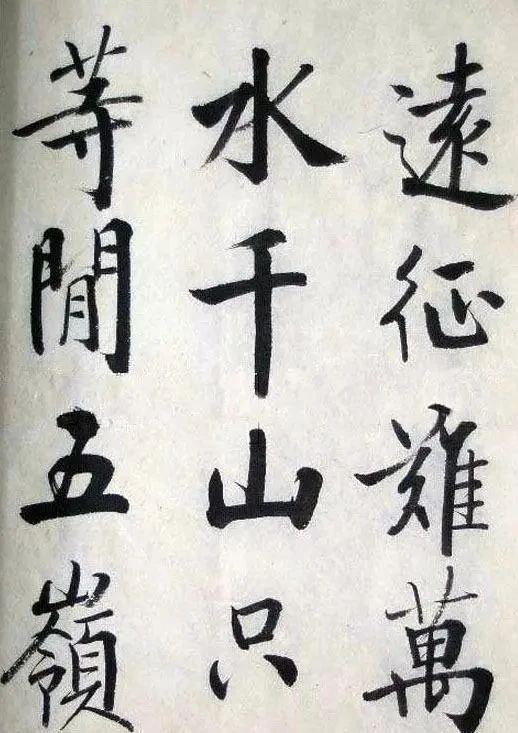 遠征難萬
水千山只
等閒五嶺